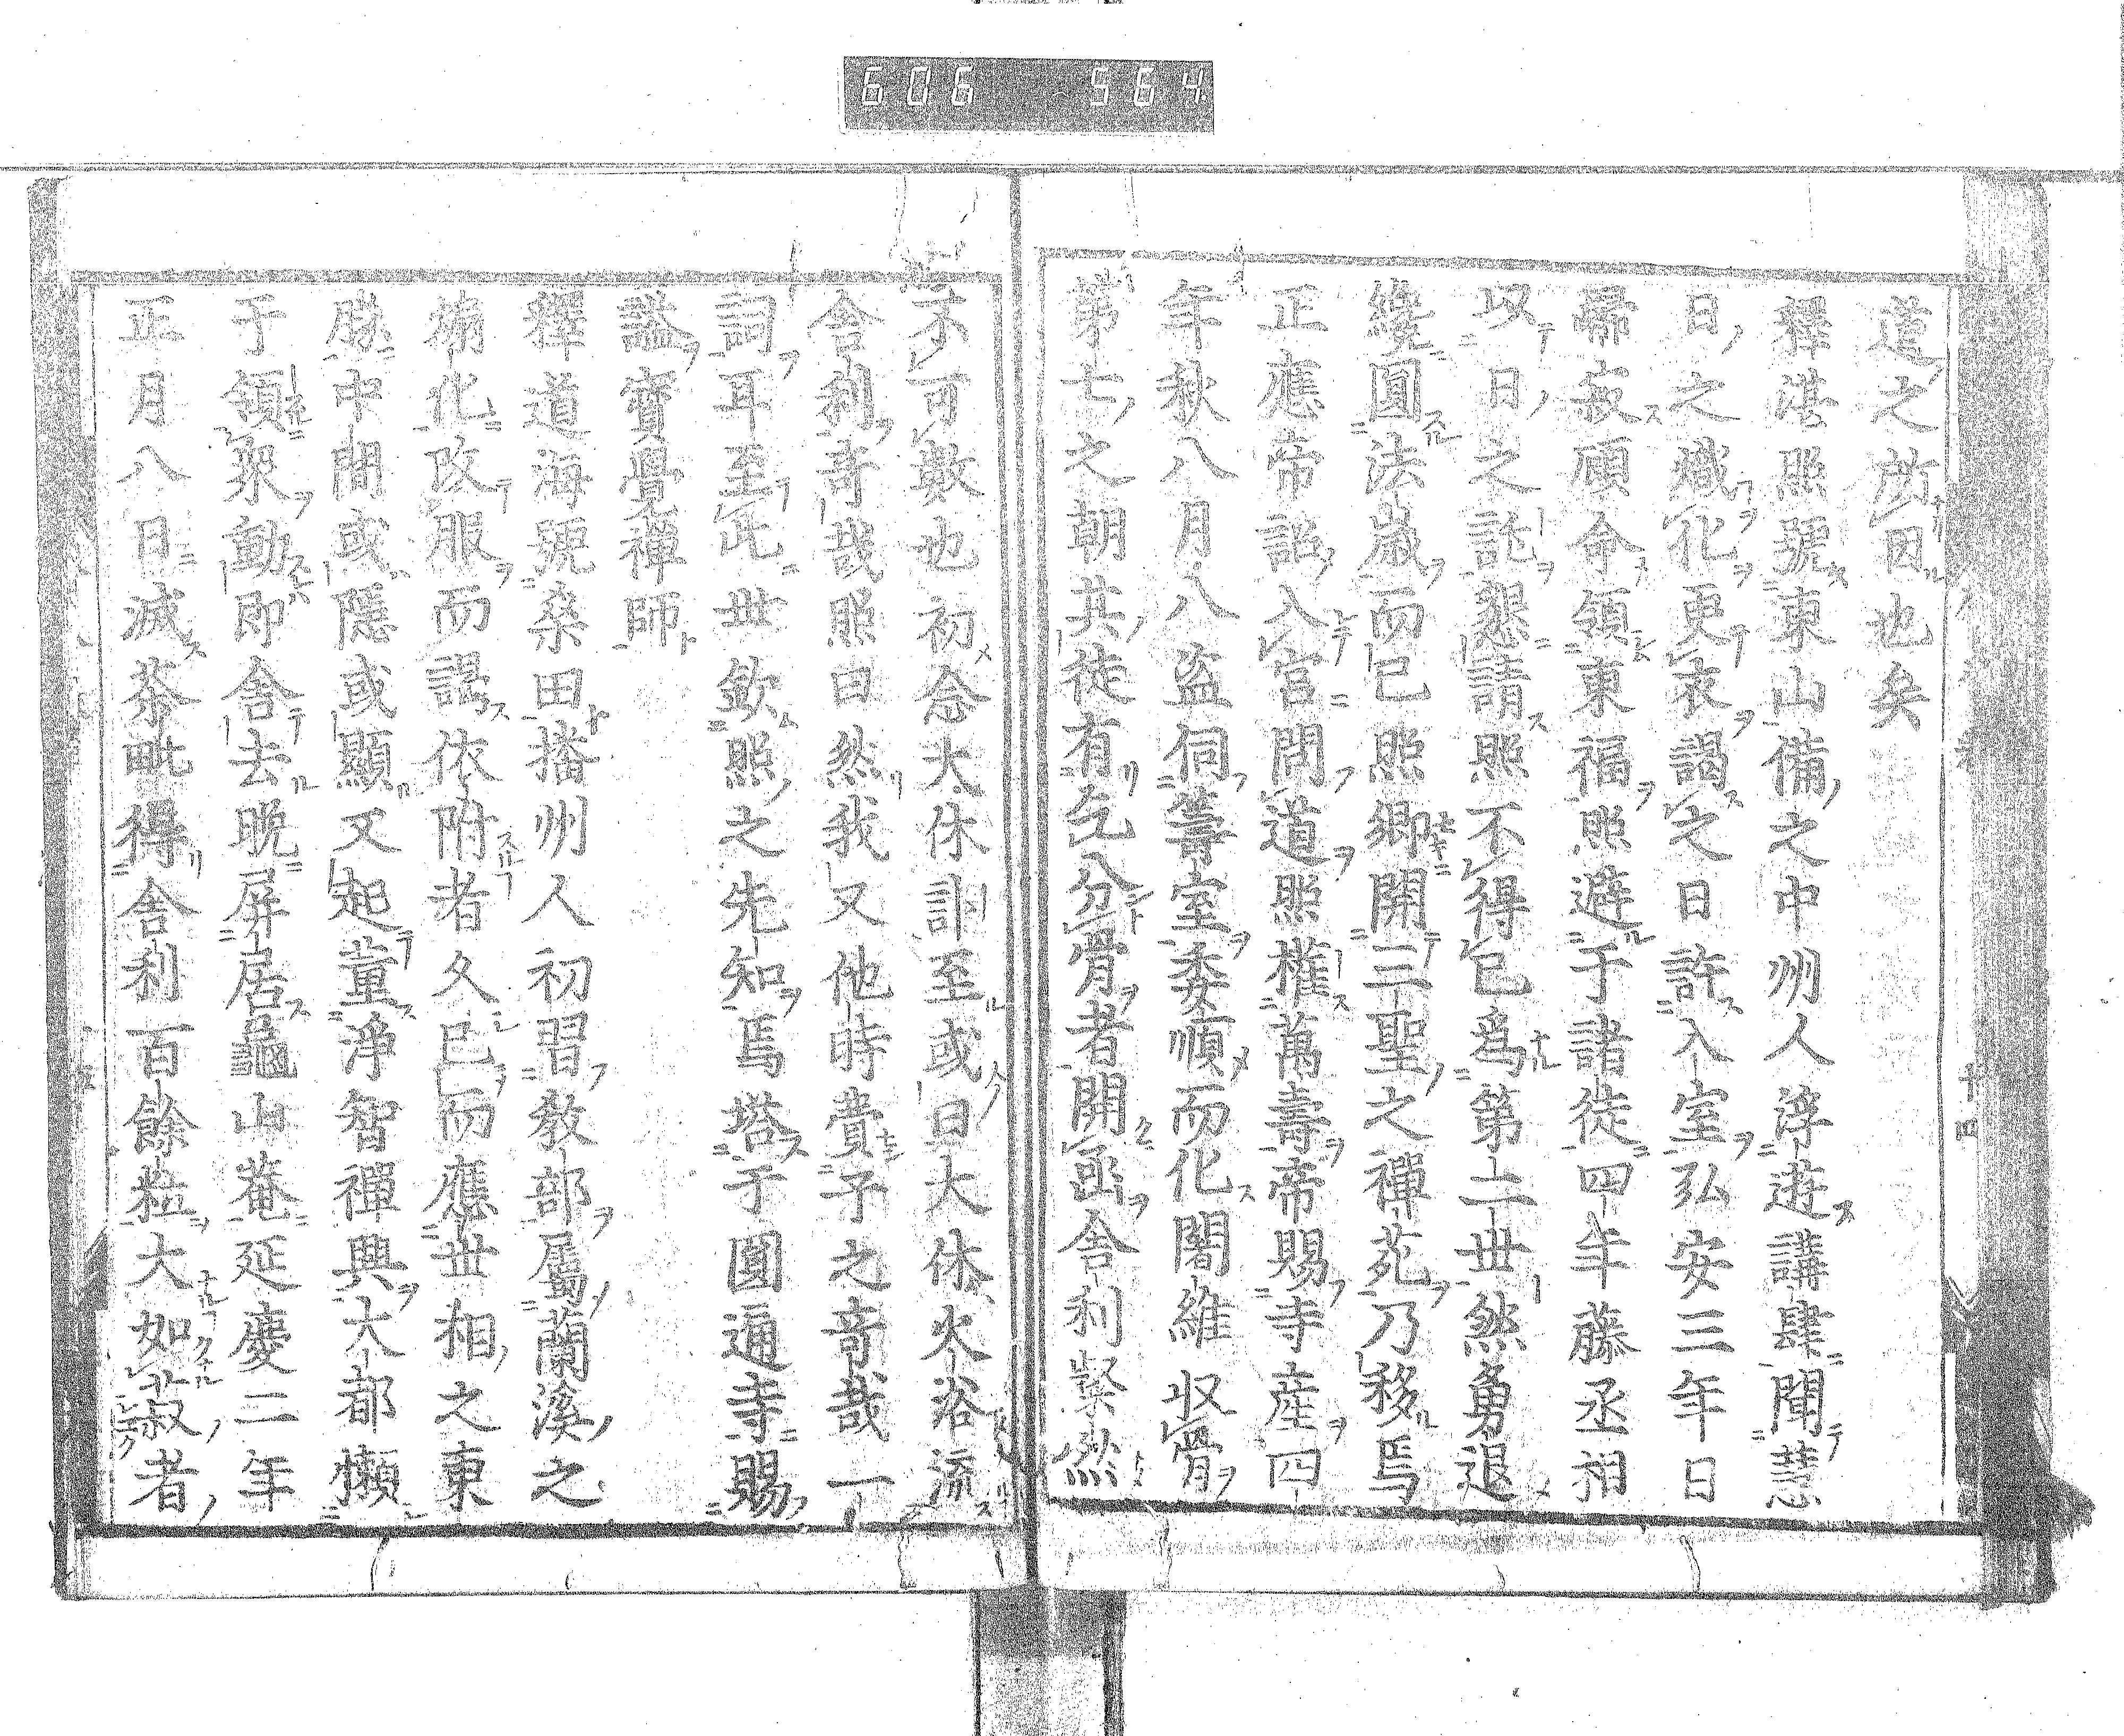 606 564
道之所因也矣
釋湛照號東山備之中州人浮遊講肆聞慧
日之熾化更衣謁之日許入室弘安三年日
歸寂顧命領東福照避于諸徒四年藤丞相
以日之託懇請照不得已爲第二世然勇退
纔圓法歲而已照卿開三聖之禪苑乃移焉
正應帝詔入宮問道照權萬壽帝賜寺產四
年秋八月八盜伺籌室委順而化闍維収骨
第七之朝其徒有乞分骨者開函舍利粲然
不可數也初念大休訃至或曰大休火浴流
舍利奇哉照曰然我又他時費子之奇哉一
詞耳至此世欽照之先知焉塔于圓通寺賜
諡寶覺禪師
釋道海號桑田播州人初習教部屬蘭溪之
煽化改服而謁依附者久已而應世相之東
勝中間或隱或顯又起董淨智禪興大都懶
于領衆動即舍去晚屏居龜山菴延慶二年
正月八日滅茶毗得舍利百餘粒大如菽者
十四